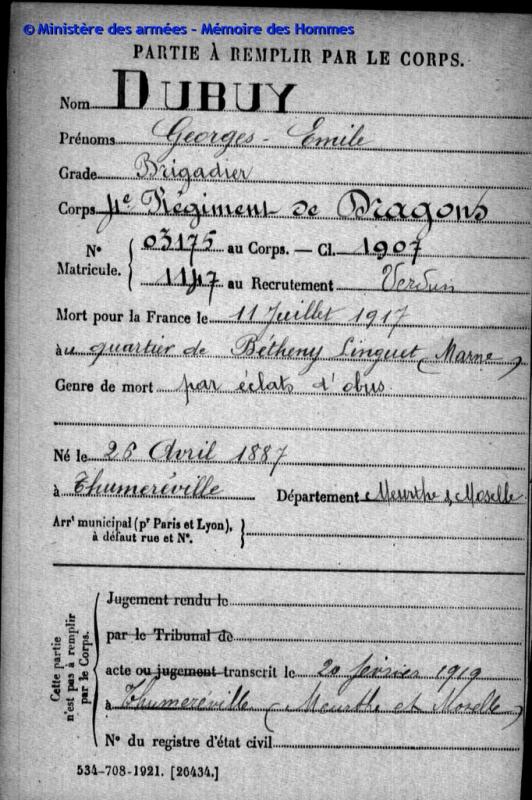 © Ministère des armées - Mémoire des Hommes
PARTIE À REMPLIR PAR LE CORPS.
Nom DUBUY
Prénoms Georges - Emile
Grade Brigadier
Corps Régiment de Dragons
N° Matricule. { 03175 au Corps. — Cl. 1907
1147 au Recrutement Verdun
Mort pour la France le 11 Juillet 1917
à au quartier de Bétheny Linguet (Marne)
Genre de mort par éclats d'obus
Né le 26 Avril 1887
à Thumeréville Département Meurthe & Moselle
Arrt municipal (pr Paris et Lyon), à défaut rue et N°. }
Cette partie n'est pas à remplir par le Corps. {
Jugement rendu le
par le Tribunal de
acte ou jugement transcrit le 20 février 1919
à Thumeréville (Meurthe et Moselle)
N° du registre d'état civil
534-708-1921. [26434.]